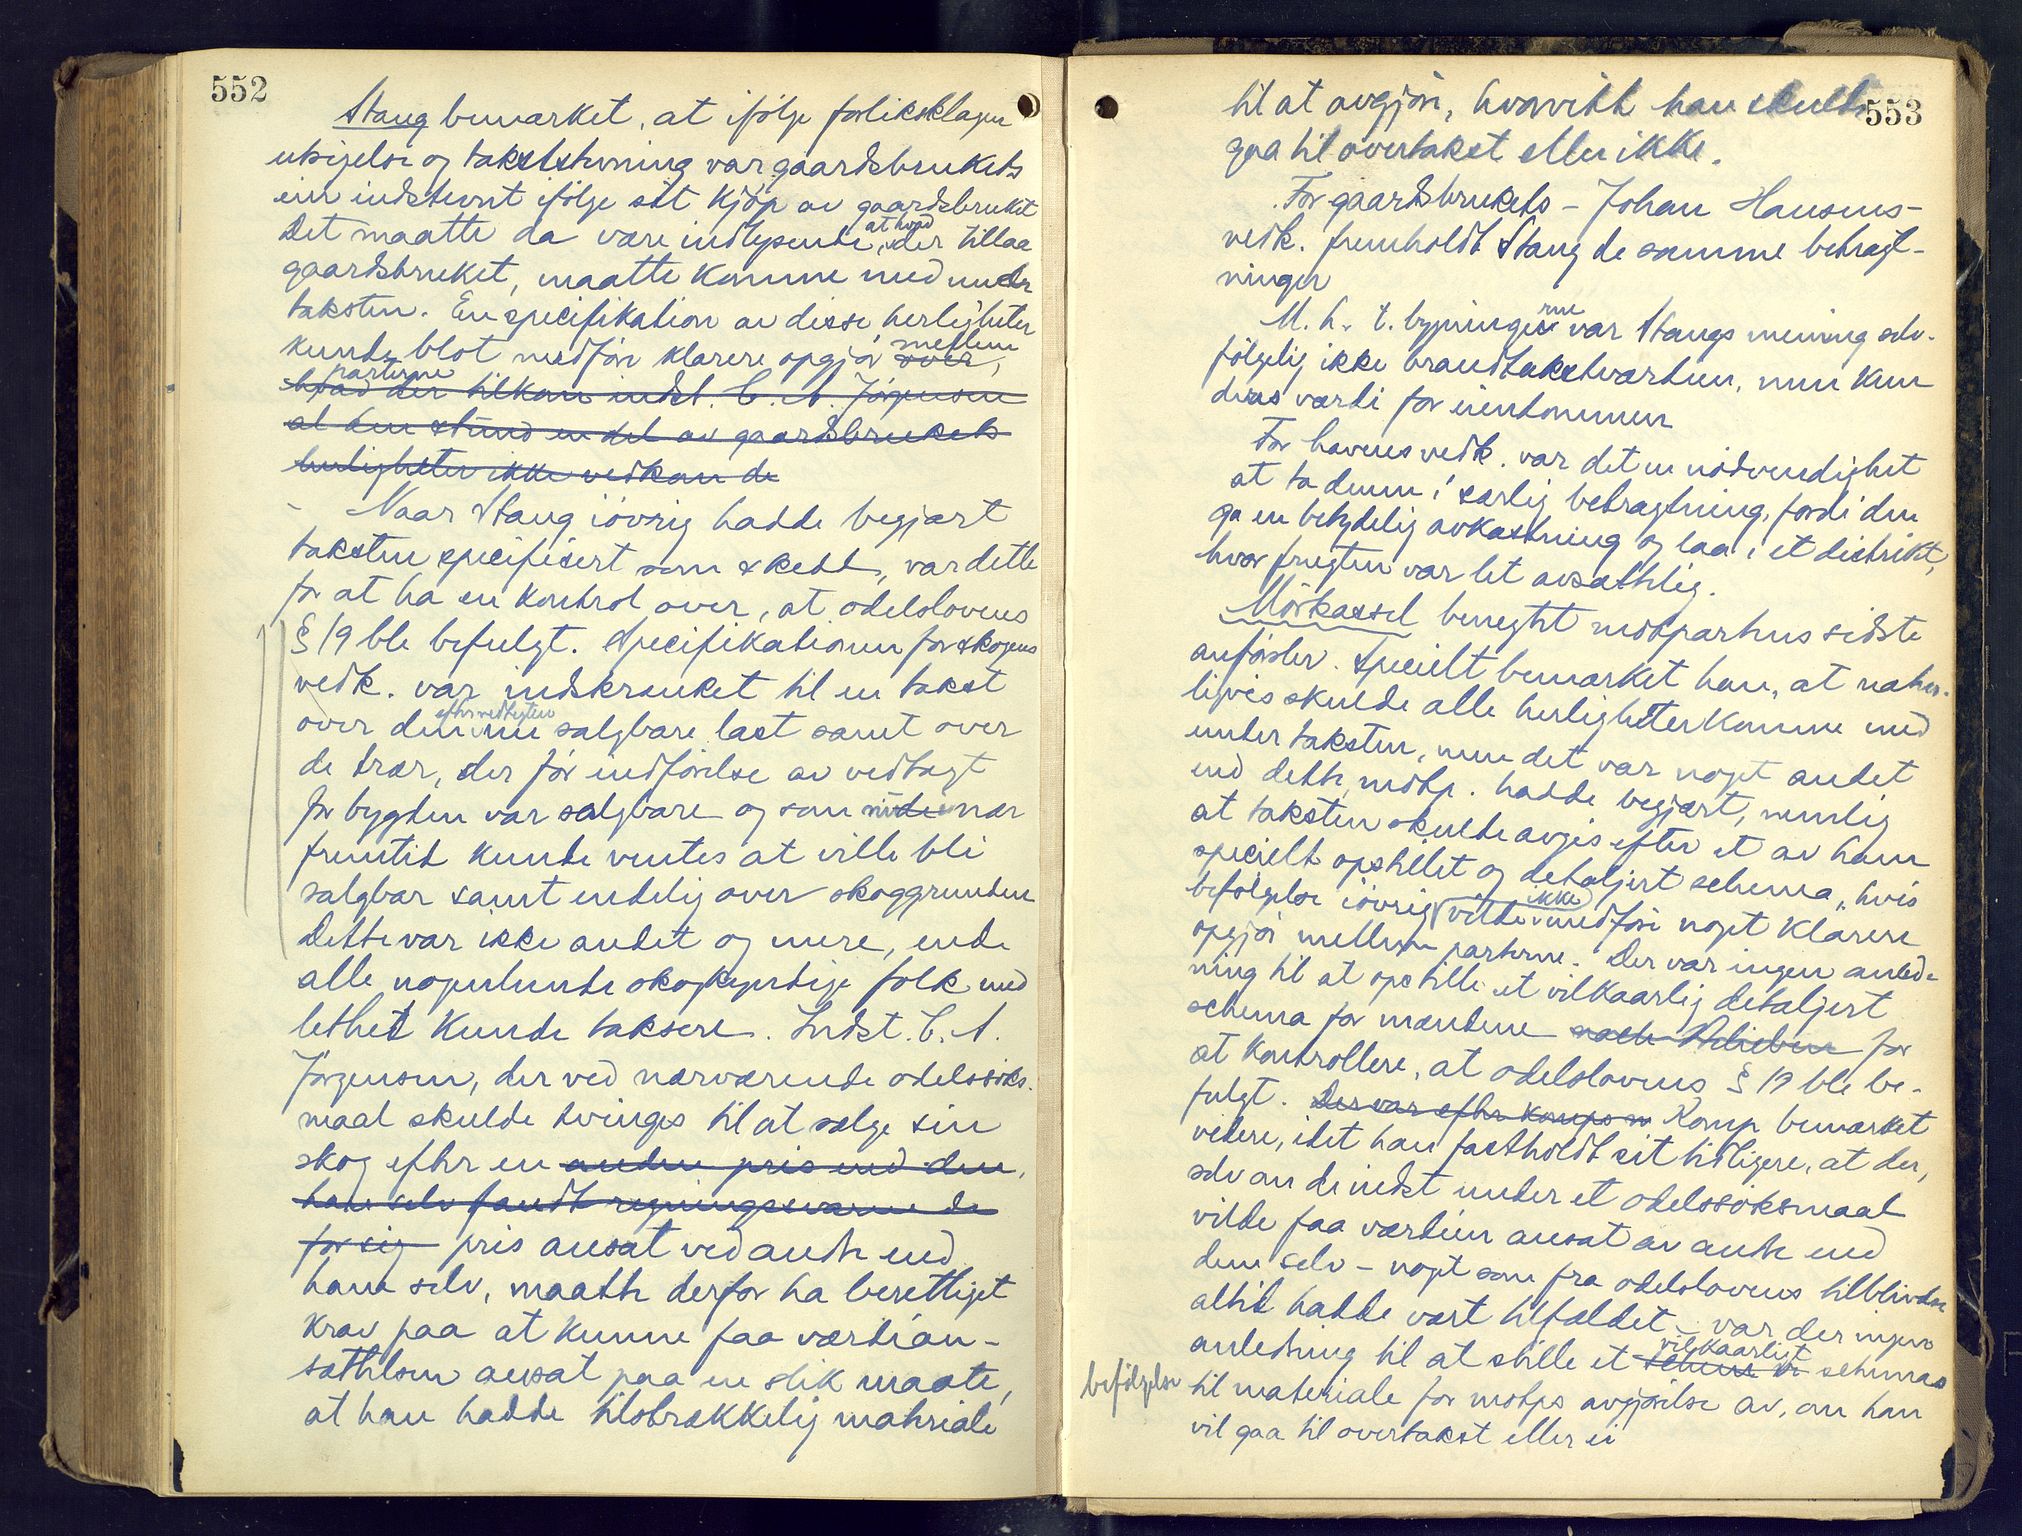 552
Stang bemærket, at ifölge forliksklagen
utsigelse og takststevning var gaardsbrukets
eier indstevnt ifölge sit kjöp av gaardsbruket
Det maatte da være indlysende, at hvad der tillaa
gaardsbruket, maatte komme med under
taksten. En specifikation av disse herligheter
kunde blot medföre klarere opgjör mellem over,
parterne
hvad der tilkom indst. C. A. Jörgensen
al den stund en del av gaardsbrukets
herligheter ikke vedkom de
- Naar Stang iövrig hadde begjært
taksten specifisert som skedd, var dette
for at ha en kontrol over, at odelslovens
§ 19 ble befulgt. Specifikationen for skogens
vedk. var indskrænket til en takst
over den efter vedtegten nu salgbare last samt over
de trær, der för indförelse av vedtægt
for bygden var salgbare og som nær
fremtid kunde ventes at ville bli
salgbar samt endelig over skoggrunden
Dette var ikke andet og mere, end
alle nogenlunde skogkyndige folk med
lethet kunde taksere. Indst. C. A.
Jörgensen, der ved nærværende odelssöks-
maal skulde tvinges til at sælge sin
skog efter en anden pris end den,
han selv fandt regningssvarende
for sig pris ansat ved andre end
ham selv, maatte derfor ha berettiget
krav paa at kunne faa værdian-
sættelsen ansat paa en slik maate,
at han hadde tilstrækkelig materiale
553
til at avgjöre, hvorvidt han skulde
gaa til overtakst eller ikke.
For gaardsbrukets - Johan Hansens -
vedk. fremholdt Stang de samme betragt-
ninger
M. h. t. bygningerne var Stangs mening selv-
fölgelig ikke brandtakstværdien, men kun
deres værdi for eiendommen
For havens vedk. var det en nödvendighet
at ta denne i særlig betragtning, fordi den
ga en betydelig avkastning og laa i et distrikt,
hvor frugten var let avsættelig.
Mörkassel benegtet motpartens sidste
anförsler. Specielt bemærket han, at natur-
ligvis skulde alle herligheter komme med
under taksten, men det var noget andet
end dette, motp. hadde begjært, nemlig
at taksten skulde avgis efter et av ham
specielt opstillet og detaljert schema, hvis
befölgelse iövrig vilde ikke medföre noget klarere
opgjör mellem parterne. Der var ingen anled-
ning til at opstille et vilkaarlig detaljert
schema for mændene for
at kontrollere, at odelslovens § 19 ble be-
fulgt. Der var efter komps m Komp bemærket
videre, idet han fastholdt sit tidligere, at der,
selv om de indst under et odelssöksmaal
vilde faa værdien ansat av andre end
dem selv - noget som fra odelslovens tilblivelse
altid hadde vært tilfældet - var der ingen
anledning til at stille et vilkaarligt schemas
befölgelse
til materiale for motps avgjörelse av, om han
vil gaa til overtakst eller ei